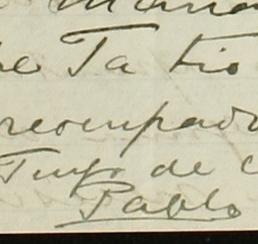 Ta tio
reocupado
Tuyo de c
Pablo